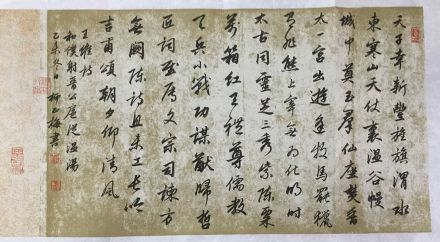 天子幸新豐旌旗渭水
東寒山天仗裏溫谷幔
城中奠玉羣仙座焚香
太一宮出遊逢牧馬罷獵
見非熊上宰無為化明時
太古同靈芝三秀紫陳粟
萬箱紅王禮尊儒教
天兵小戰功謀猷歸哲
匠詞賦屬文宗司諫方
無闕陳詩且未工長吟
吉甫頌朝夕仰清風
王維詩
和僕射晉公扈從溫湯
乙未冬日